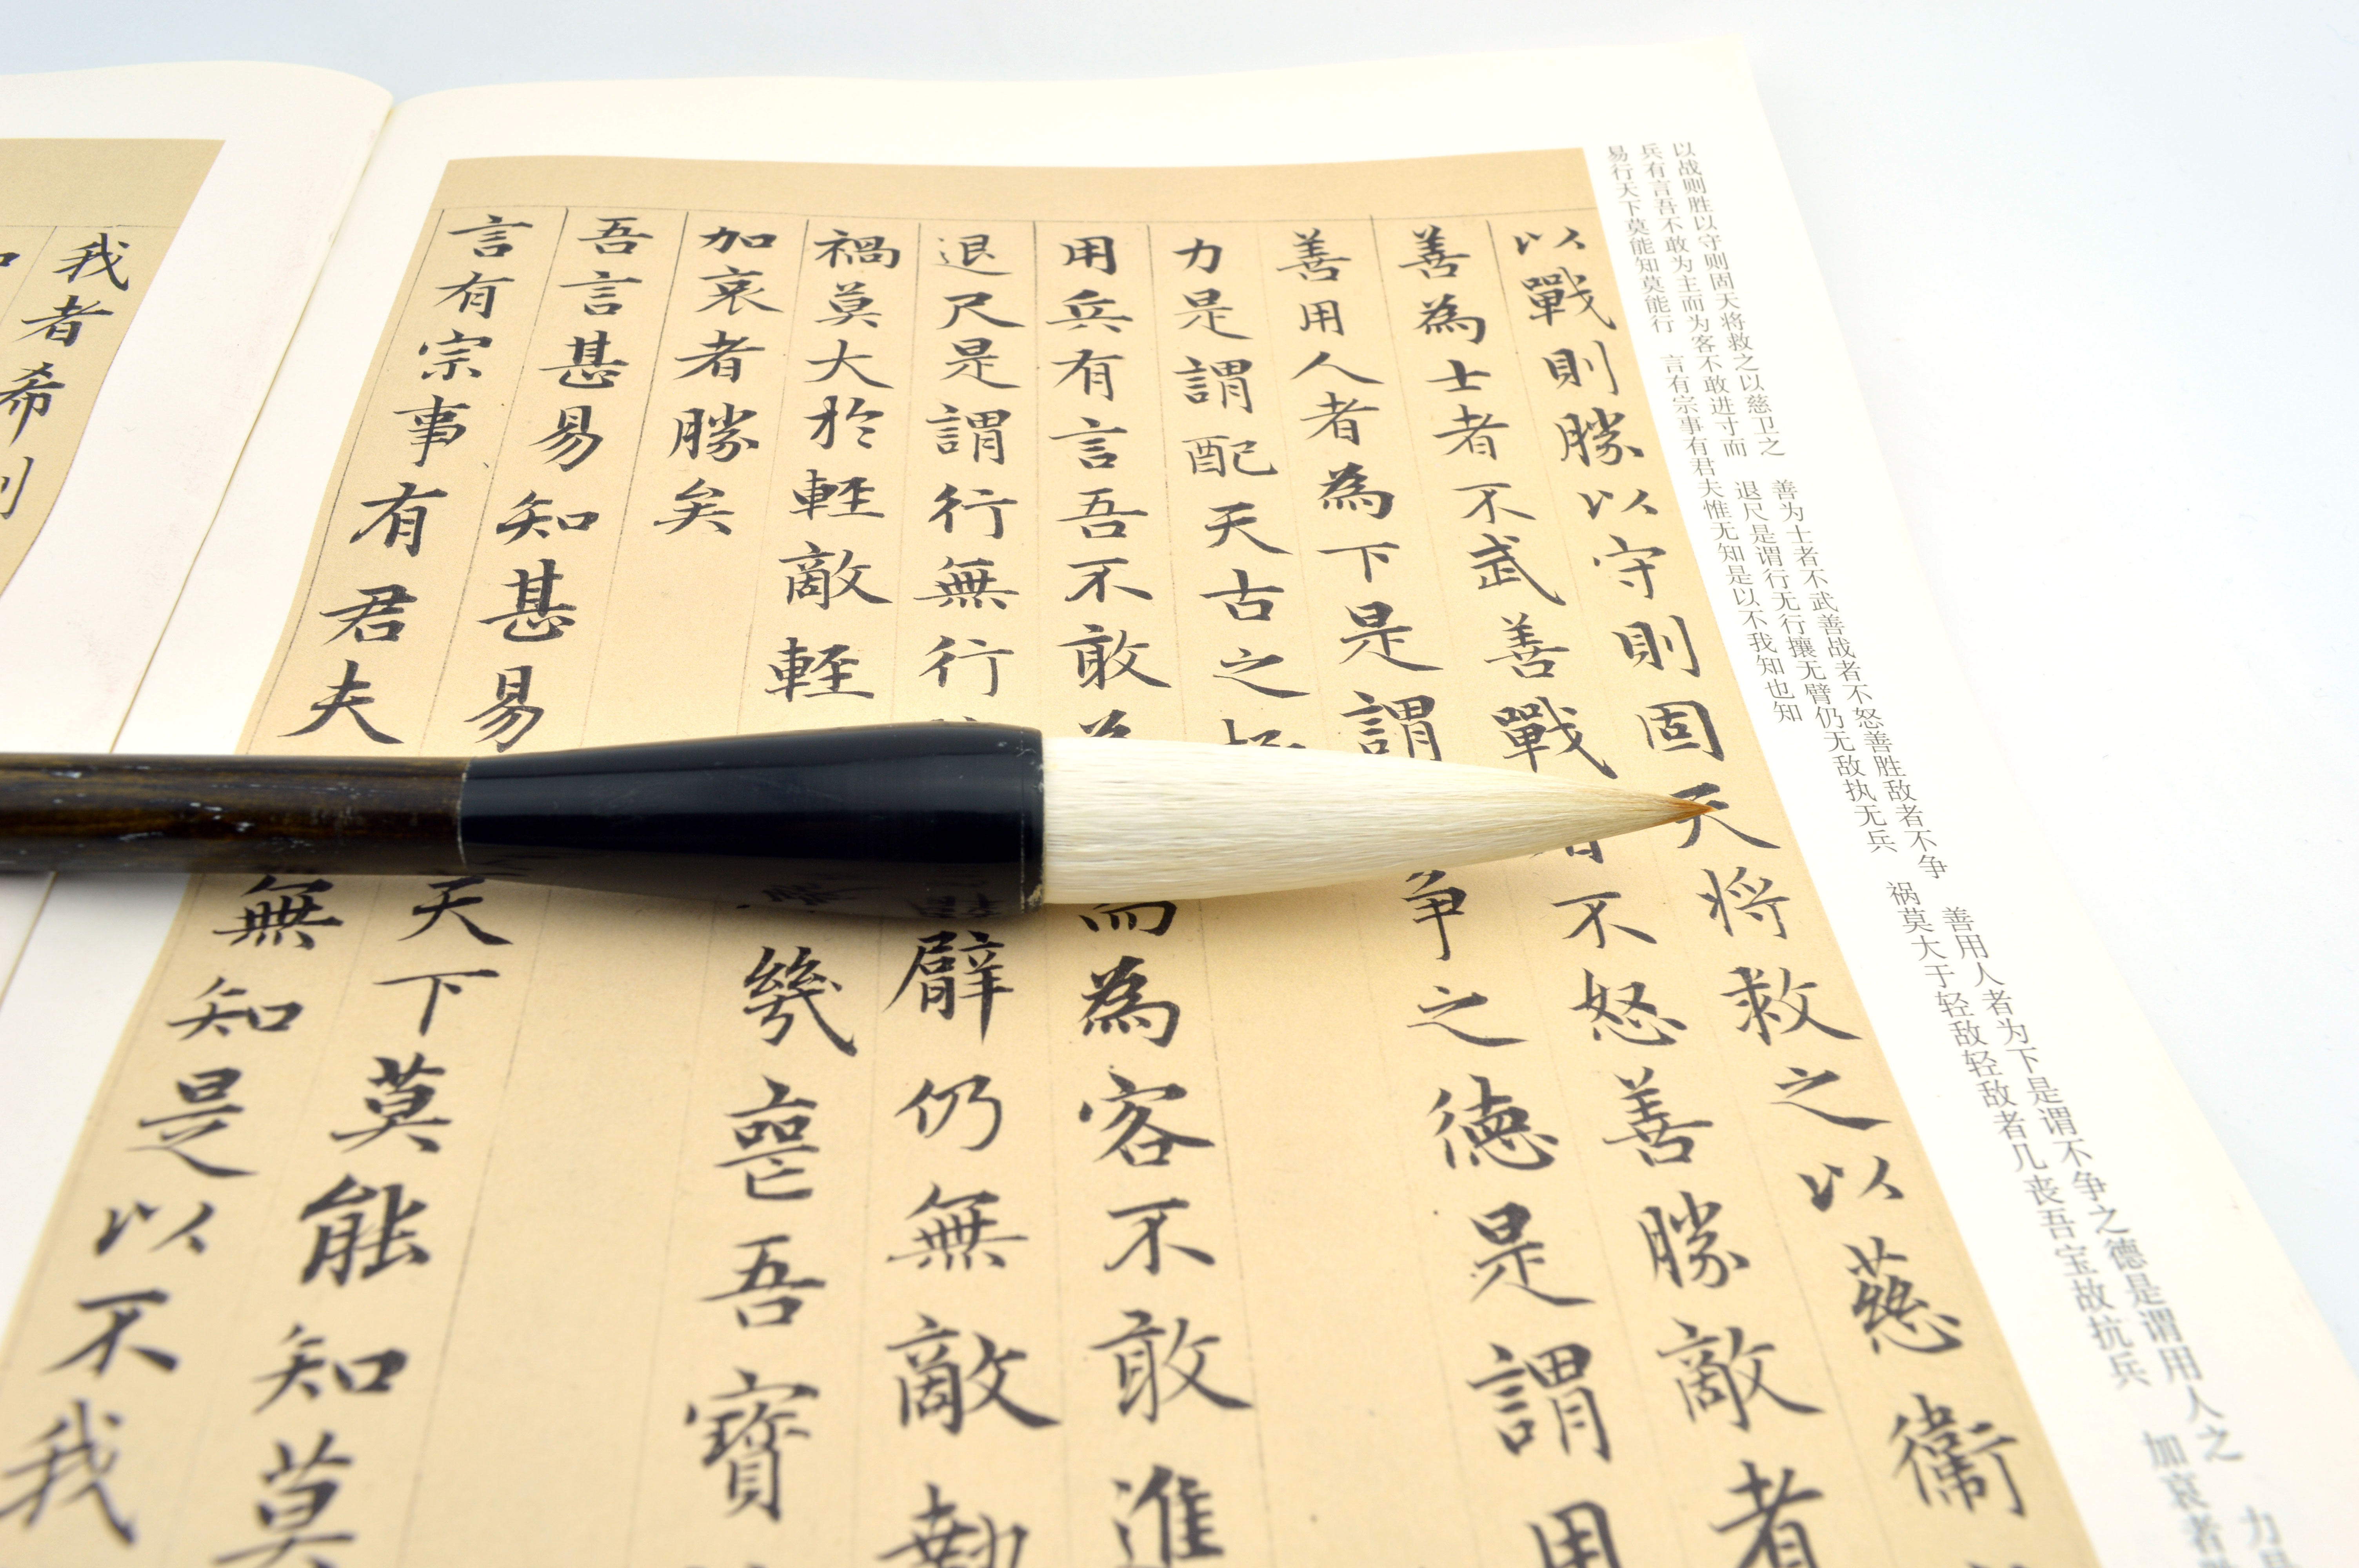 以战则胜以守则固天将救之以慈卫之　善为士者不武善战者不怒善胜敌者不争　善用人者为下是谓不争之德是谓用人之　力
兵有言吾不敢为主而为客不敢进寸而　退尺是谓行无行攘无臂仍无敌执无兵　祸莫大于轻敌轻敌者几丧吾宝故抗兵　加哀者
易行天下莫能知莫能行　言有宗事有君夫惟无知是以不我知也知
以戰則勝以守則固天将救之以慈衛
善為士者不武善戰者不怒善勝敵者
善用人者為下是謂争之德是謂用
力是謂配天古之
用兵有言吾不敢而為客不敢進
退尺是謂行無行臂仍無敵執
禍莫大於輕敵輕幾喪吾寶
加哀者勝矣
吾言甚易知甚易天下莫能知莫
言有宗事有君夫無知是以不我
我者希則